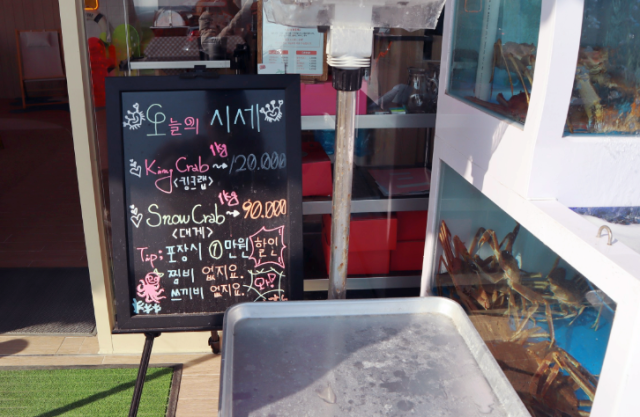 오늘의 시세
King Crab 1kg → 120.000
<킹크랩>
Snow Crab 1kg → 90.000
<대게>
Tip; 포장시 ① 만원 할인
찜비 없지요.
쓰끼비 없지요.